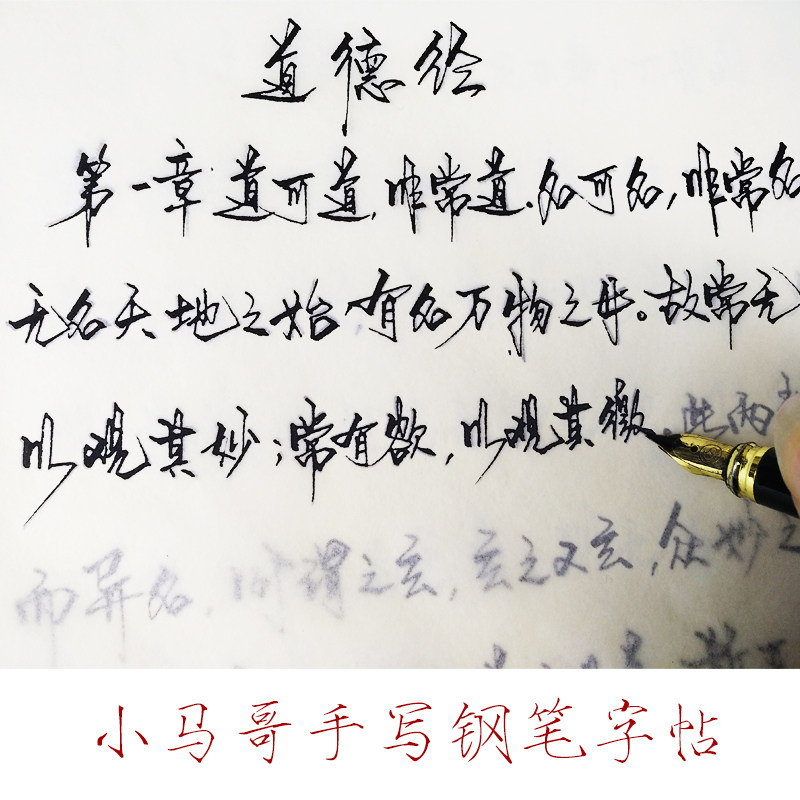 道德经
第一章 道可道,非常道.名可名,非常名
无名天地之始,有名万物之母。故常无
以观其妙;常有欲,以观其徼.此两
而异名,同谓之玄,玄之又玄,众妙之
小马哥手写钢笔字帖